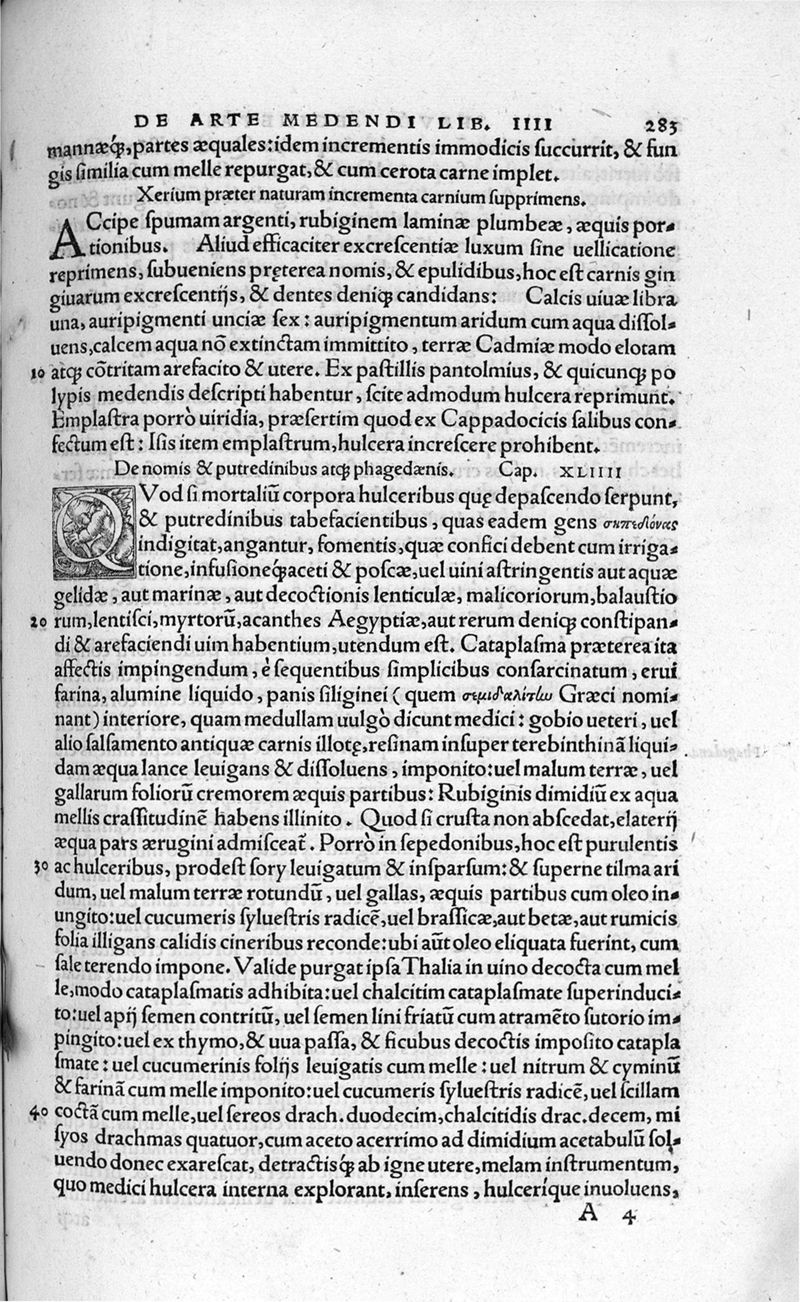 DE ARTE MEDENDI LIB. IIII 283
mannæq́;, partes æquales: idem incrementis immodicis ſuccurrit, & fun
gis ſimilia cum melle repurgat, & cum cerota carne implet.
Xerium præter naturam incrementa carnium ſupprimens.
ACcipe ſpumam argenti, rubiginem laminæ plumbeæ, æquis por-
tionibus. Aliud efficaciter excreſcentiæ luxum ſine uellicatione
reprimens, ſubueniens pręterea nomis, & epulidibus, hoc eſt carnis gin
giuarum excreſcentijs, & dentes deniq́; candidans: Calcis uiuæ libra
una, auripigmenti unciæ ſex: auripigmentum aridum cum aqua diſſol-
uens, calcem aqua nõ extinctam immittito, terræ Cadmiæ modo elotam
10 atq́; cõtritam arefacito & utere. Ex paſtillis pantolmius, & quicunq́; po
lypis medendis deſcripti habentur, ſcite admodum hulcera reprimunt.
Emplaſtra porrò uiridia, præſertim quod ex Cappadocicis ſalibus con-
fectum eſt: Iſis item emplaſtrum, hulcera increſcere prohibent.
De nomis & putredinibus atq́; phagedænis. Cap. XLIIII
QVod ſi mortaliũ corpora hulceribus quę depaſcendo ſerpunt,
& putredinibus tabefacientibus, quas eadem gens σηπεδόνας
indigitat, angantur, fomentis, quæ confici debent cum irriga-
tione, infuſioneq́; aceti & poſcæ, uel uini aſtringentis aut aquæ
gelidæ, aut marinæ, aut decoctionis lenticulæ, malicoriorum, balauſtio
20 rum, lentiſci, myrtorũ, acanthes Aegyptiæ, aut rerum deniq́; conſtipan-
di & arefaciendi uim habentium, utendum eſt. Cataplaſma præterea ita
affectis impingendum, è ſequentibus ſimplicibus conſarcinatum, erui
farina, alumine liquido, panis ſiliginei (quem σεμιδαλίτην Græci nomi-
nant) interiore, quam medullam uulgò dicunt medici: gobio ueteri, uel
alio ſalſamento antiquæ carnis illotę, reſinam inſuper terebinthinã liqui-
dam æqua lance leuigans & diſſoluens, imponito: uel malum terræ, uel
gallarum foliorũ cremorem æquis partibus: Rubiginis dimidiũ ex aqua
mellis craſſitudinẽ habens illinito. Quod ſi cruſta non abſcedat, elaterij
æqua pars ærugini admiſceat̃. Porrò in ſepedonibus, hoc eſt purulentis
30 ac hulceribus, prodeſt ſory leuigatum & inſparſum: & ſuperne tilma ari
dum, uel malum terræ rotundũ, uel gallas, æquis partibus cum oleo in-
ungito: uel cucumeris ſylueſtris radicẽ, uel braſſicæ, aut betæ, aut rumicis
folia illigans calidis cineribus reconde: ubi aũt oleo eliquata fuerint, cum
ſale terendo impone. Valide purgat ipſa Thalia in uino decocta cum mel
le, modo cataplaſmatis adhibita: uel chalcitim cataplaſmate ſuperinduci-
to: uel apij ſemen contritũ, uel ſemen lini friatũ cum atramẽto ſutorio im-
pingito: uel ex thymo, & uua paſſa, & ficubus decoctis impoſito catapla
ſmate: uel cucumerinis folijs leuigatis cum melle: uel nitrum & cyminũ
& farinã cum melle imponito: uel cucumeris ſylueſtris radicẽ, uel ſcillam
40 coctã cum melle, uel ſereos drach. duodecim, chalcitidis drac. decem, mi
ſyos drachmas quatuor, cum aceto acerrimo ad dimidium acetabulũ ſol-
uendo donec exareſcat, detractisq́; ab igne utere, melam inſtrumentum,
quo medici hulcera interna explorant, inſerens, hulceriq́ue inuoluens,
A 4